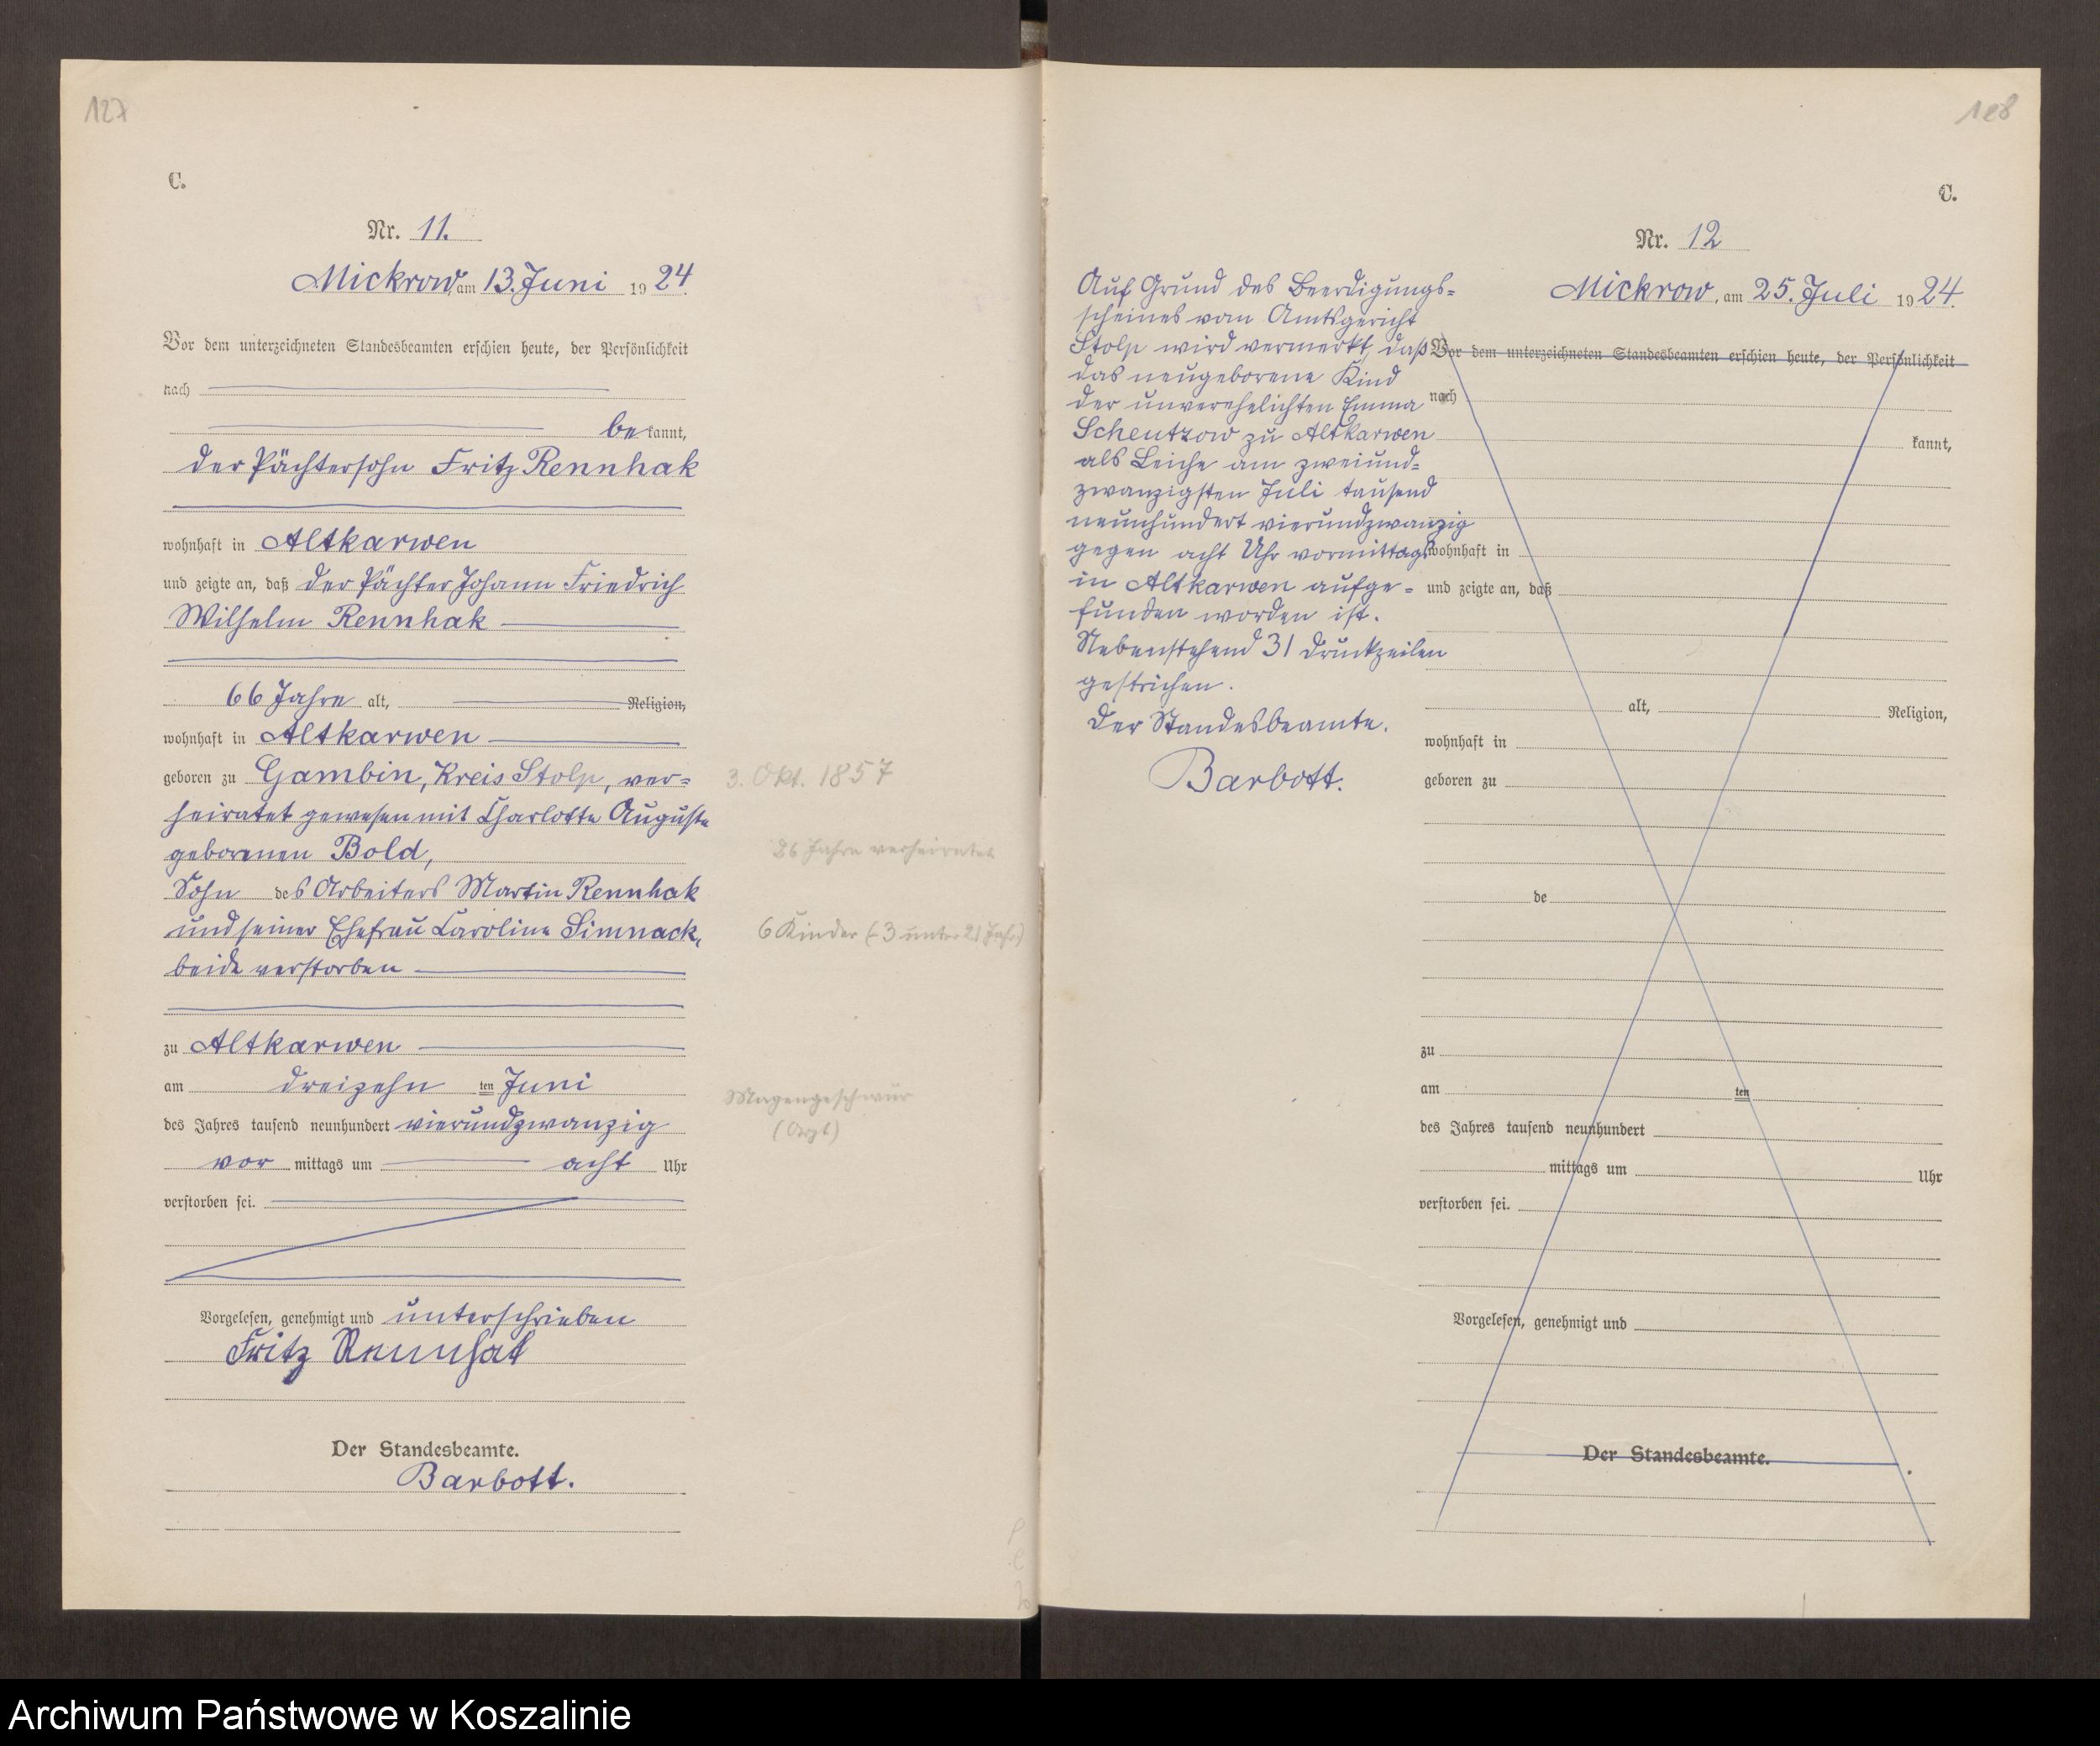 127
C.
Nr. 11.
Mickrow, am 13. Juni 1924.
Vor dem unterzeichneten Standesbeamten erschien heute, der Persönlichkeit
nach
bekannt,
der Pächtersohn Fritz Rennhak
wohnhaft in Altkarwen
und zeigte an, daß der Pächter Johann Friedrich
Wilhelm Rennhak
66 Jahre alt, Religion,
wohnhaft in Altkarwen
geboren zu Gambin, Kreis Stolp, ver=
3. Okt. 1857
heiratet gewesen mit Charlotte Auguste
geborenen Bold,
26 Jahre verheiratet
Sohn des Arbeiters Martin Rennhak
und seiner Ehefrau Caroline Simnack,
6 Kinder (3 unter 21 Jahr)
beide verstorben
zu Altkarwen
am dreizehn ten Juni
Magengeschwür
des Jahres tausend neunhundert vierundzwanzig
(Arzt)
vor mittags um acht Uhr
verstorben sei.
Vorgelesen, genehmigt und unterschrieben
Fritz Rennhak
Der Standesbeamte.
Barbott.
128
C.
Nr. 12
Mickrow, am 25. Juli 1924.
Auf Grund des Beerdigungs=
scheines vom Amtsgericht
Stolp wird vermerkt, daß
das neugeborene Kind
der unverehelichten Emma
Scheutzow zu Altkarwen
als Leiche am zweiund=
zwanzigsten Juli tausend
neunhundert vierundzwanzig
gegen acht Uhr vormittags
in Altkarwen aufge=
funden worden ist.
Nebenstehend 31 Druckzeilen
gestrichen.
Der Standesbeamte.
Barbott.
Vor dem unterzeichneten Standesbeamten erschien heute, der Persönlichkeit
nach
kannt,
wohnhaft in
und zeigte an, daß
alt, Religion,
wohnhaft in
geboren zu
de
zu
am ten
des Jahres tausend neunhundert
mittags um Uhr
verstorben sei.
Vorgelesen, genehmigt und
Der Standesbeamte.
Archiwum Państwowe w Koszalinie